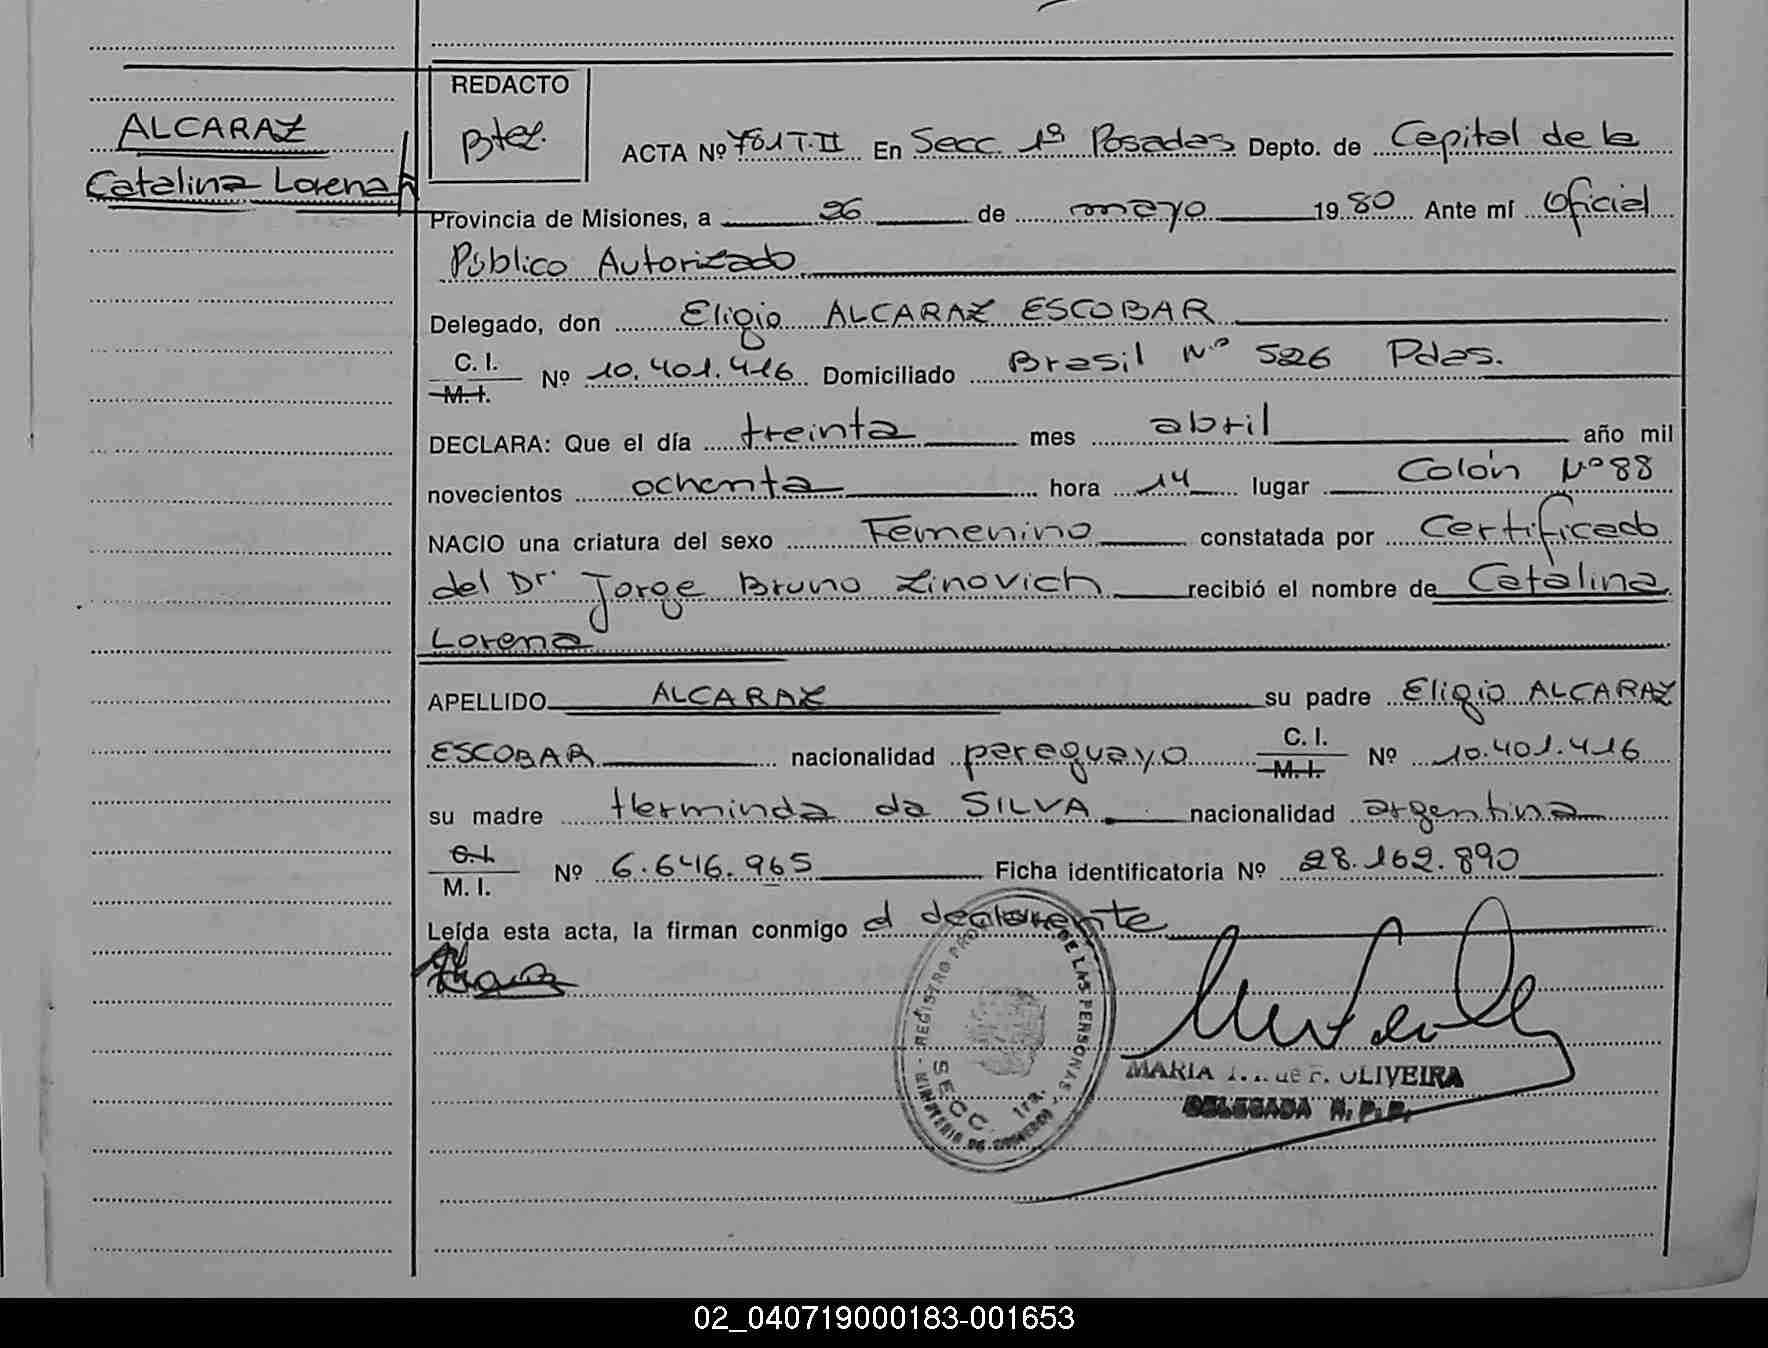 ALCARAZ
Catalina Lorena
REDACTO
Btez.
ACTA Nº 781 T.II En Secc 1ª Posadas Depto. de Capital de la
Provincia de Misiones, a 26 de mayo 1980 Ante mí Oficial
Público Autorizado
Delegado, don Eligio ALCARAZ ESCOBAR
C. I.
M. I.
Nº 10.401.416 Domiciliado Brasil Nº 526 Pdas.
DECLARA: Que el día treinta mes abril año mil
novecientos ochenta hora 14 lugar Colón Nº 88
NACIO una criatura del sexo Femenino constatada por Certificado
del Dr. Jorge Bruno Zinovich recibió el nombre de Catalina
Lorena
APELLIDO ALCARAZ su padre Eligio ALCARAZ
ESCOBAR nacionalidad paraguayo C. I. M. I. Nº 10.401.416
su madre Herminda da SILVA nacionalidad argentina
C. I.
M. I.
Nº 6.646.965 Ficha identificatoria Nº 28.162.890
Leída esta acta, la firman conmigo el declarante
REGISTRO DE LAS PERSONAS
SECC. 1ra.
MINISTERIO DE GOBIERNO
MARIA de F. OLIVEIRA
DELEGADA R. P. P.
02_040719000183-001653